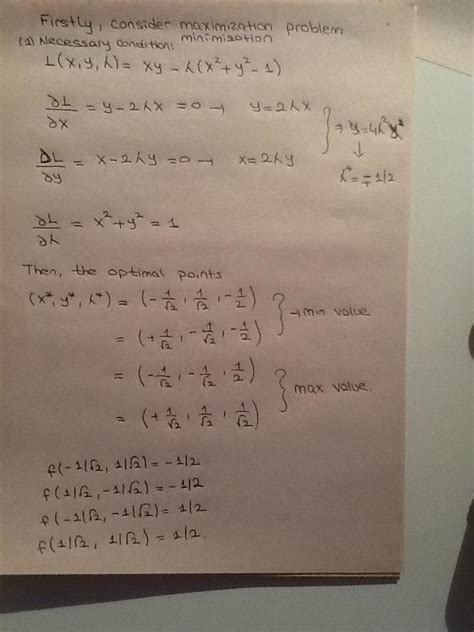 Firstly, consider maximization problem
minimization
(1) Necessary condition:
L(x,y,λ) = xy - λ(x²+y²-1)
∂L/∂x = y-2λx =0 → y=2λx
⇒ y=4λ²y²
↓
λ*=∓1/2
∂L/∂y = x-2λy =0 → x=2λy
∂L/∂λ = x²+y² = 1
Then, the optimal points
(x*,y*,λ*) = (-1/√2, 1/√2, -1/2)
→ min value
= (+1/√2, -1/√2, -1/2)
= (-1/√2, -1/√2, 1/2)
max value.
= (+1/√2, 1/√2, 1/√2)
f(-1/√2, 1/√2) = -1/2
f(1/√2, -1/√2) = -1/2
f(-1/√2, -1/√2) = 1/2
f(1/√2, 1/√2) = 1/2.